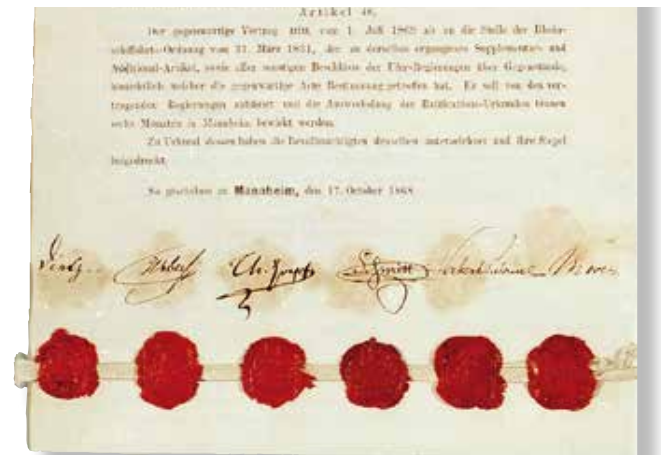 Artikel 48.
Der gegenwärtige Vertrag tritt vom 1. Juli 1869 ab an die Stelle der Rhein-
schiffahrts-Ordnung vom 31. März 1831, der zu derselben ergangenen Supplementar- und
Additional-Artikel, sowie aller sonstigen Beschlüsse der Ufer-Regierungen über Gegenstände,
hinsichtlich welcher die gegenwärtige Acte Bestimmung getroffen hat. Er soll von den ver-
tragenden Regierungen ratificirt und die Auswechslung der Ratifications-Urkunden binnen
sechs Monaten in Mannheim bewirkt werden.
Zu Urkund dessen haben die Bevollmächtigten denselben unterzeichnet und ihre Siegel
beigedruckt.
So geschehen zu Mannheim, den 17. October 1868
Schmitt